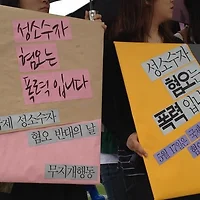 성소수자
혐오는
폭력입니다
국제 성소수자
혐오 반대의 날
무지개행동
성소수자
혐오는
폭력입니
5월 17일은 국제